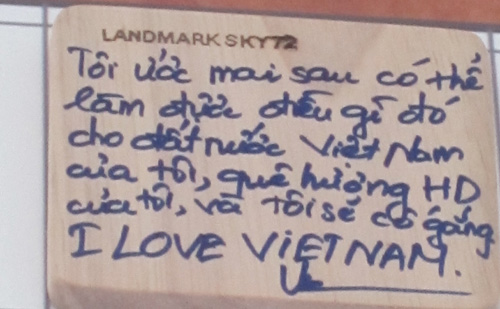 LANDMARK SKY72
Tôi ước mai sau có thể
làm được điều gì đó
cho đất nước Việt Nam
của tôi, quê hương HD
của tôi, và tôi sẽ cố gắng
I LOVE VIETNAM.